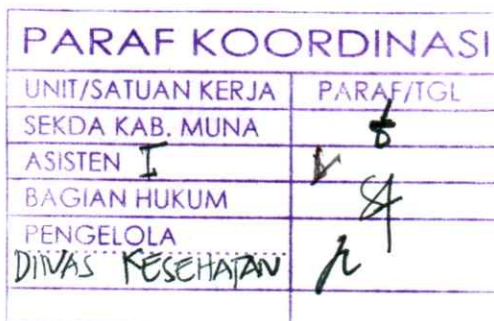 PARAF KOORDINASI
UNIT/SATUAN KERJA PARAF/TGL
SEKDA KAB. MUNA
ASISTEN I
BAGIAN HUKUM
PENGELOLA
DINAS KESEHATAN